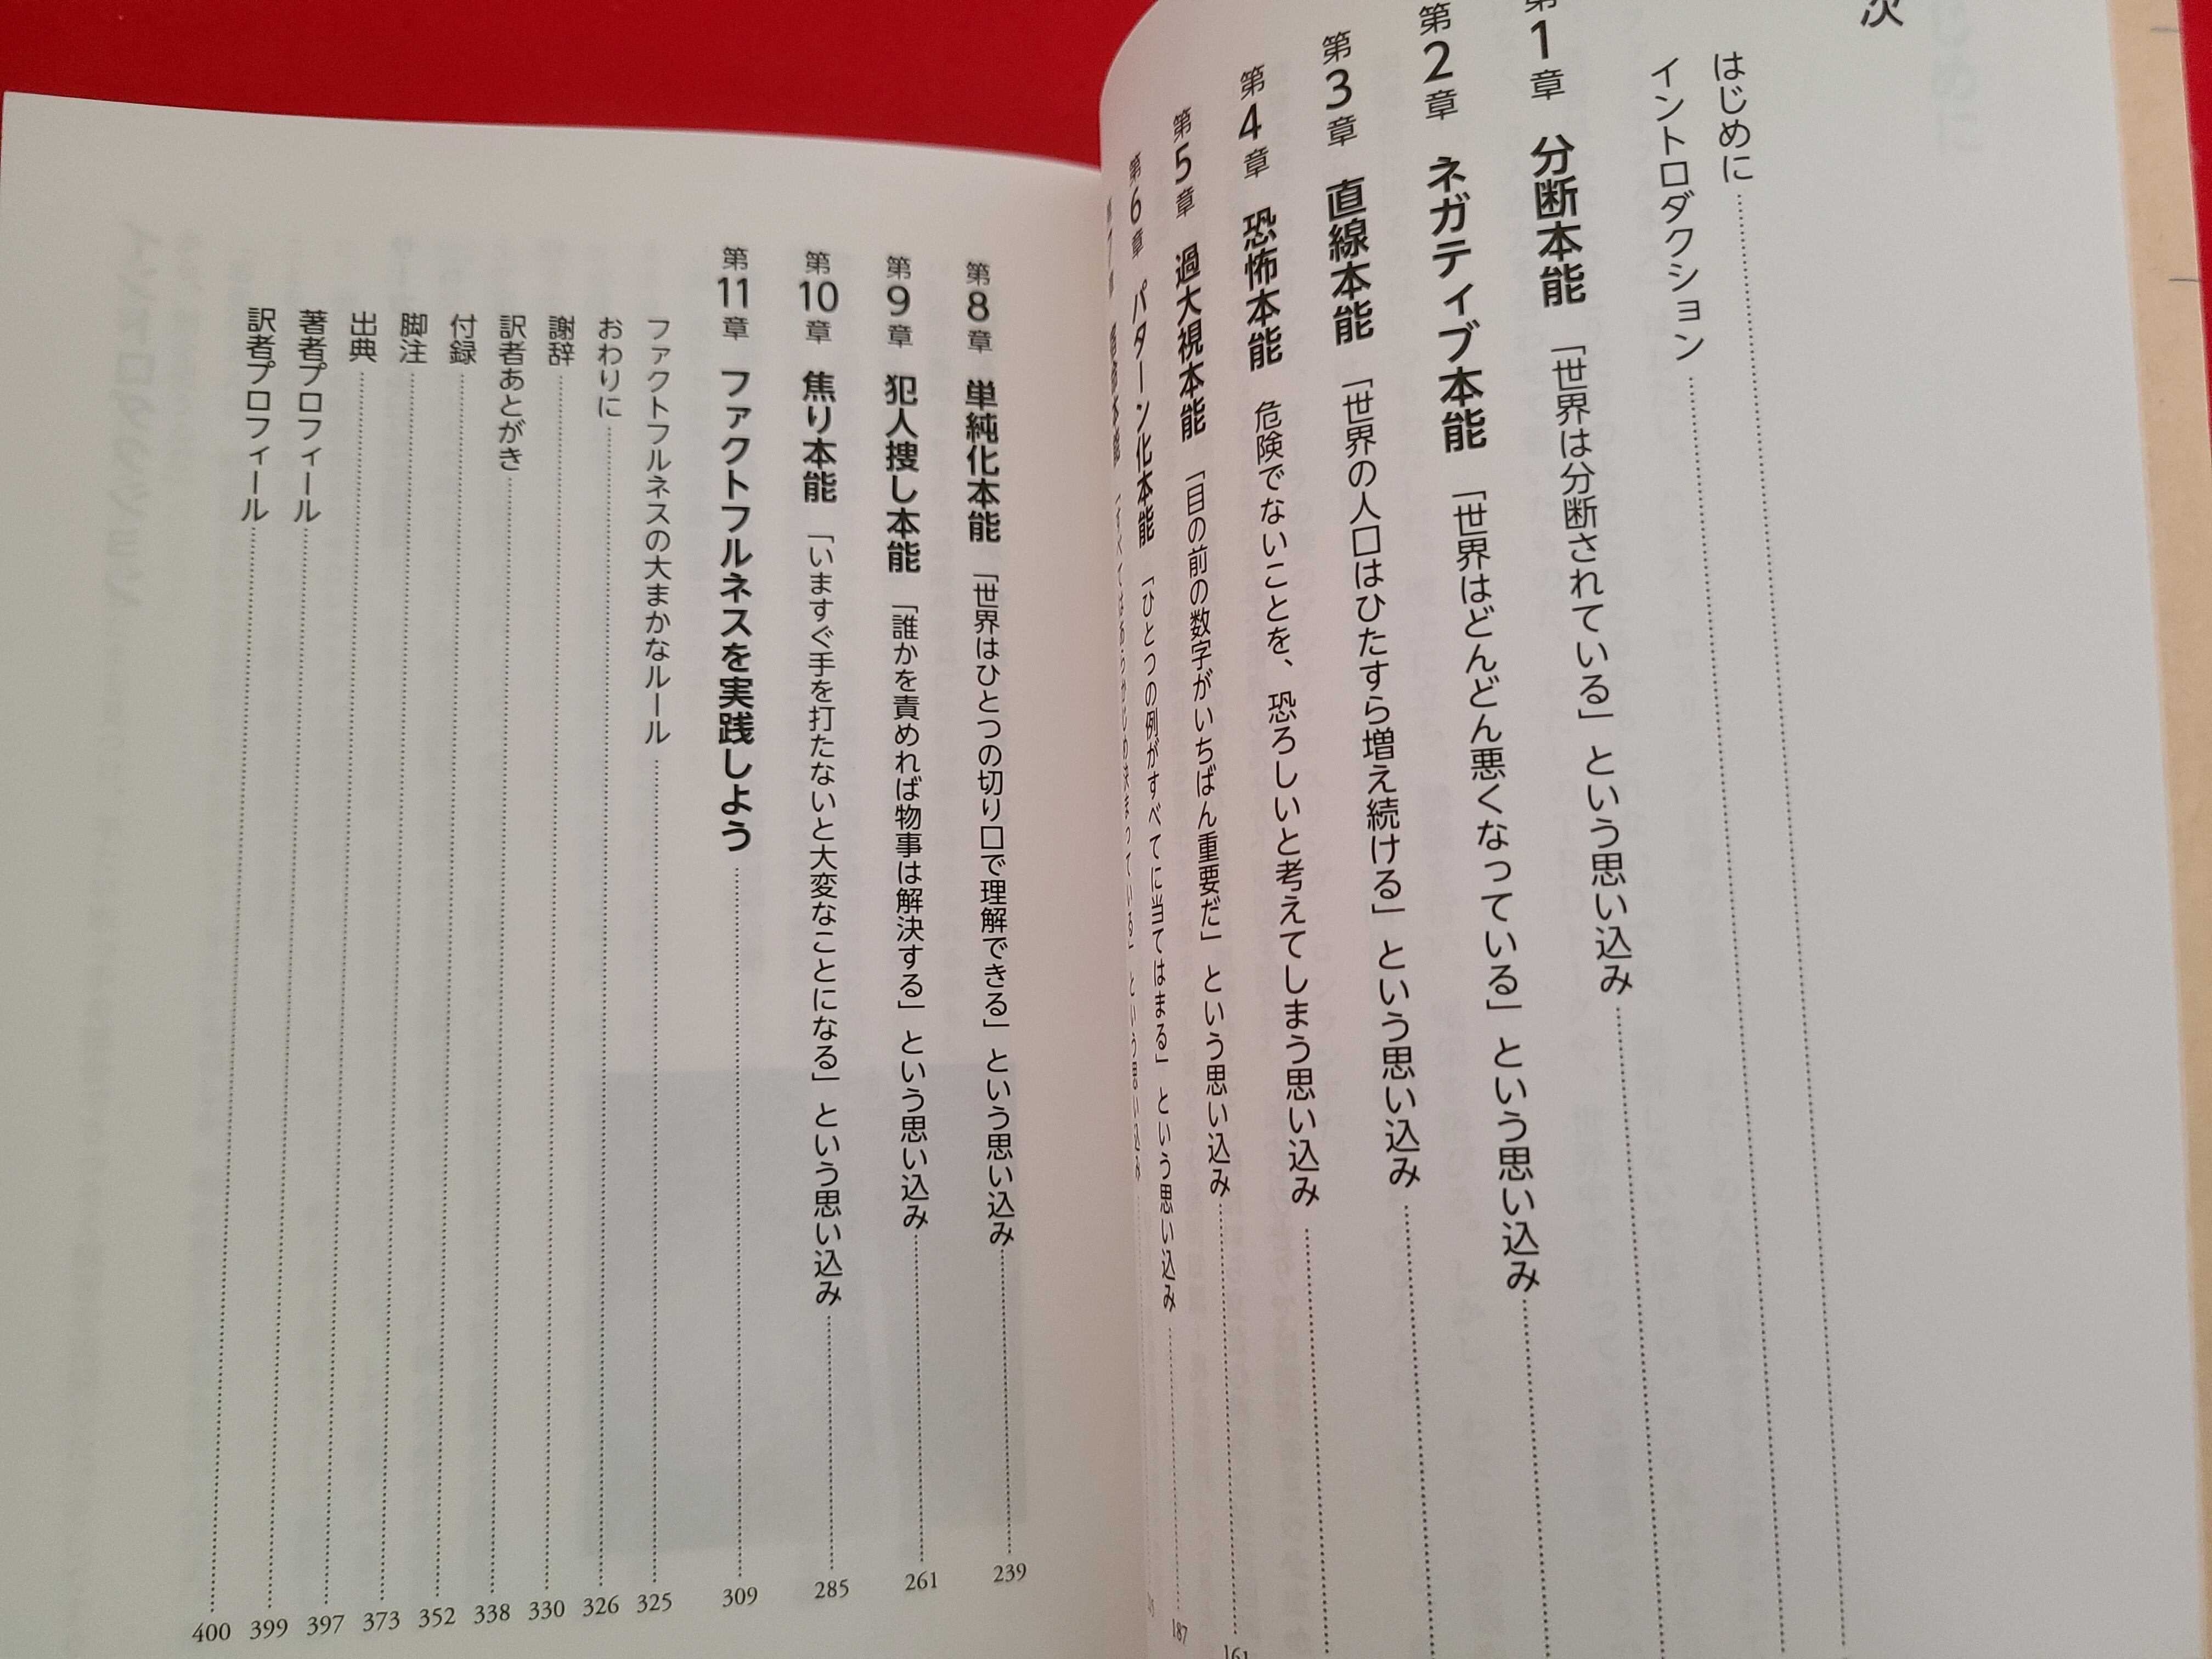 次
はじめに
イントロダクション
第1章 分断本能 「世界は分断されている」という思い込み
第2章 ネガティブ本能 「世界はどんどん悪くなっている」という思い込み
第3章 直線本能 「世界の人口はひたすら増え続ける」という思い込み
第4章 恐怖本能 危険でないことを、恐ろしいと考えてしまう思い込み
第5章 過大視本能 「目の前の数字がいちばん重要だ」という思い込み 161
第6章 パターン化本能 「ひとつの例がすべてに当てはまる」という思い込み 187
第7章 本能 「すべてはあらかじめ決まっている」という思い込み
第8章 単純化本能 「世界はひとつの切り口で理解できる」という思い込み 239
第9章 犯人捜し本能 「誰かを責めれば物事は解決する」という思い込み 261
第10章 焦り本能 「いますぐ手を打たないと大変なことになる」という思い込み 285
第11章 ファクトフルネスを実践しよう 309
ファクトフルネスの大まかなルール 325
おわりに 326
謝辞 330
訳者あとがき 338
付録 352
脚注 373
出典 397
著者プロフィール 399
訳者プロフィール 400